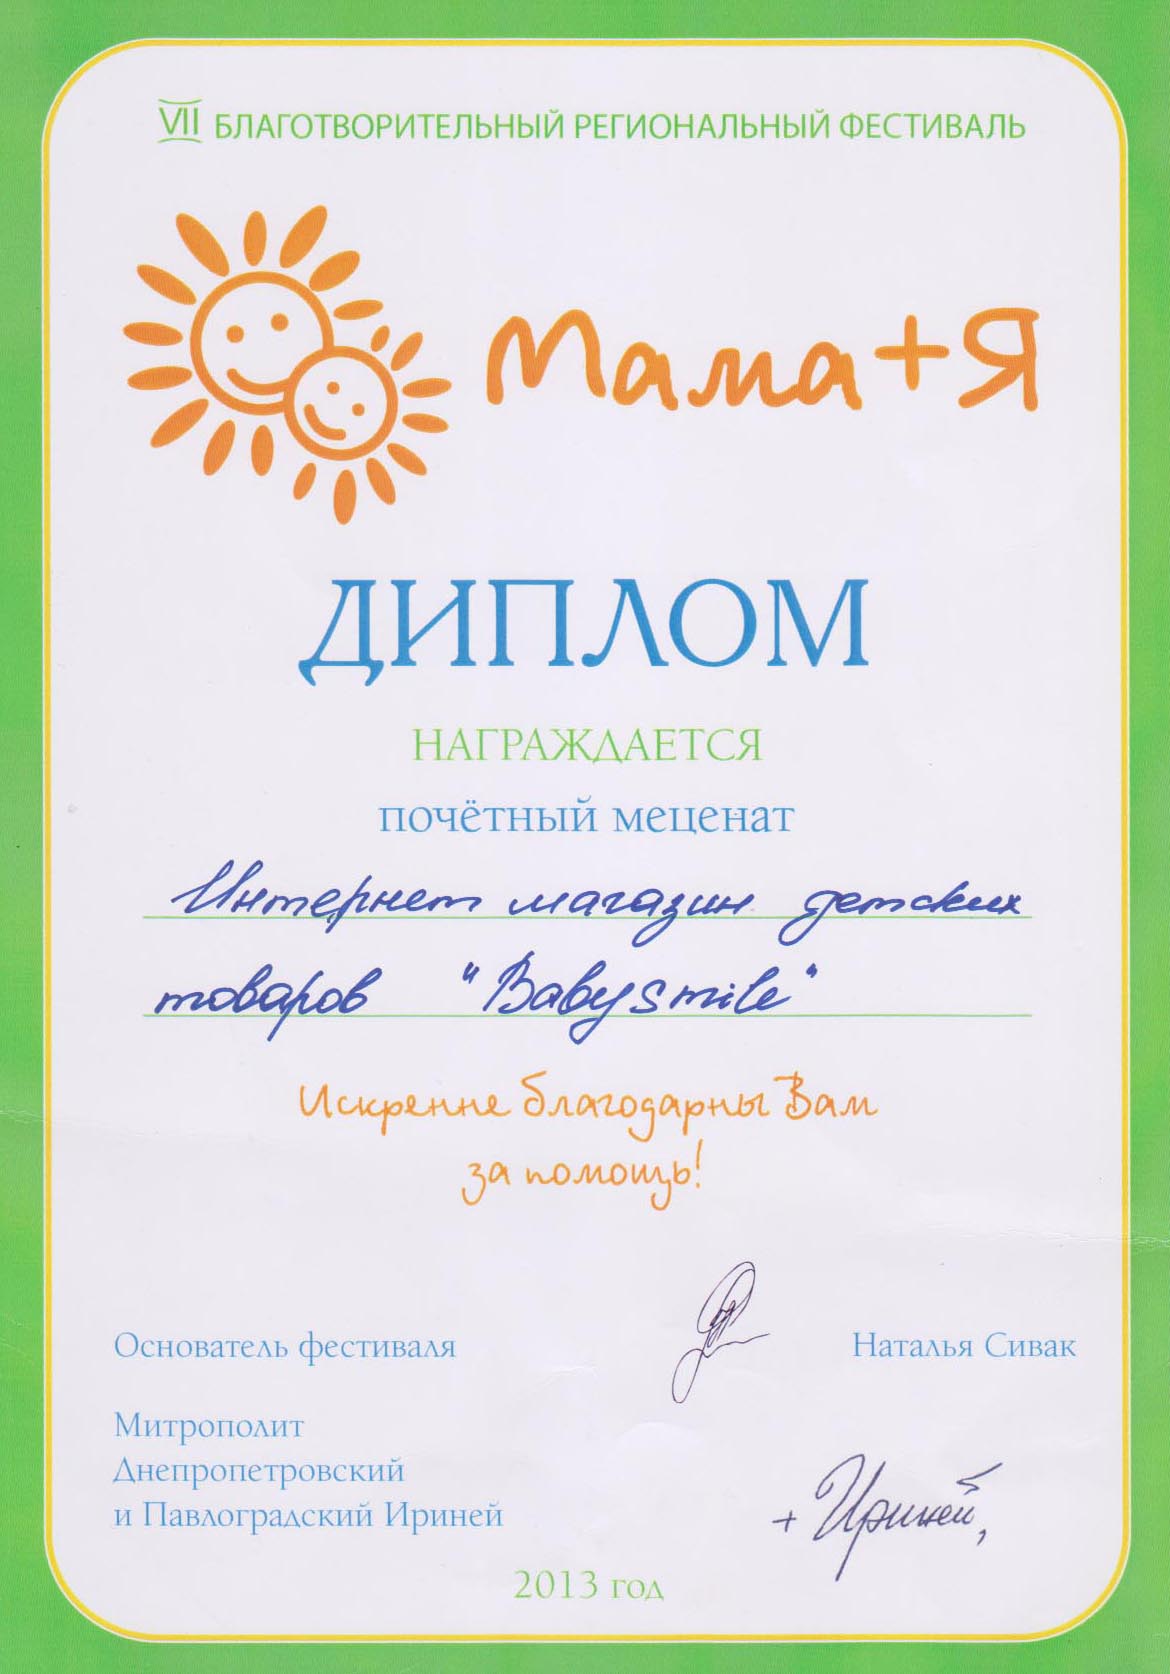 VII БЛАГОТВОРИТЕЛЬНЫЙ РЕГИОНАЛЬНЫЙ ФЕСТИВАЛЬ
Мама+Я
ДИПЛОМ
НАГРАЖДАЕТСЯ
почётный меценат
Интернет магазин детских
товаров "Babysmile"
Искренне благодарны Вам
за помощь!
Основатель фестиваля Наталья Сивак
Митрополит
Днепропетровский
и Павлоградский Ириней
+ Ириней,
2013 год